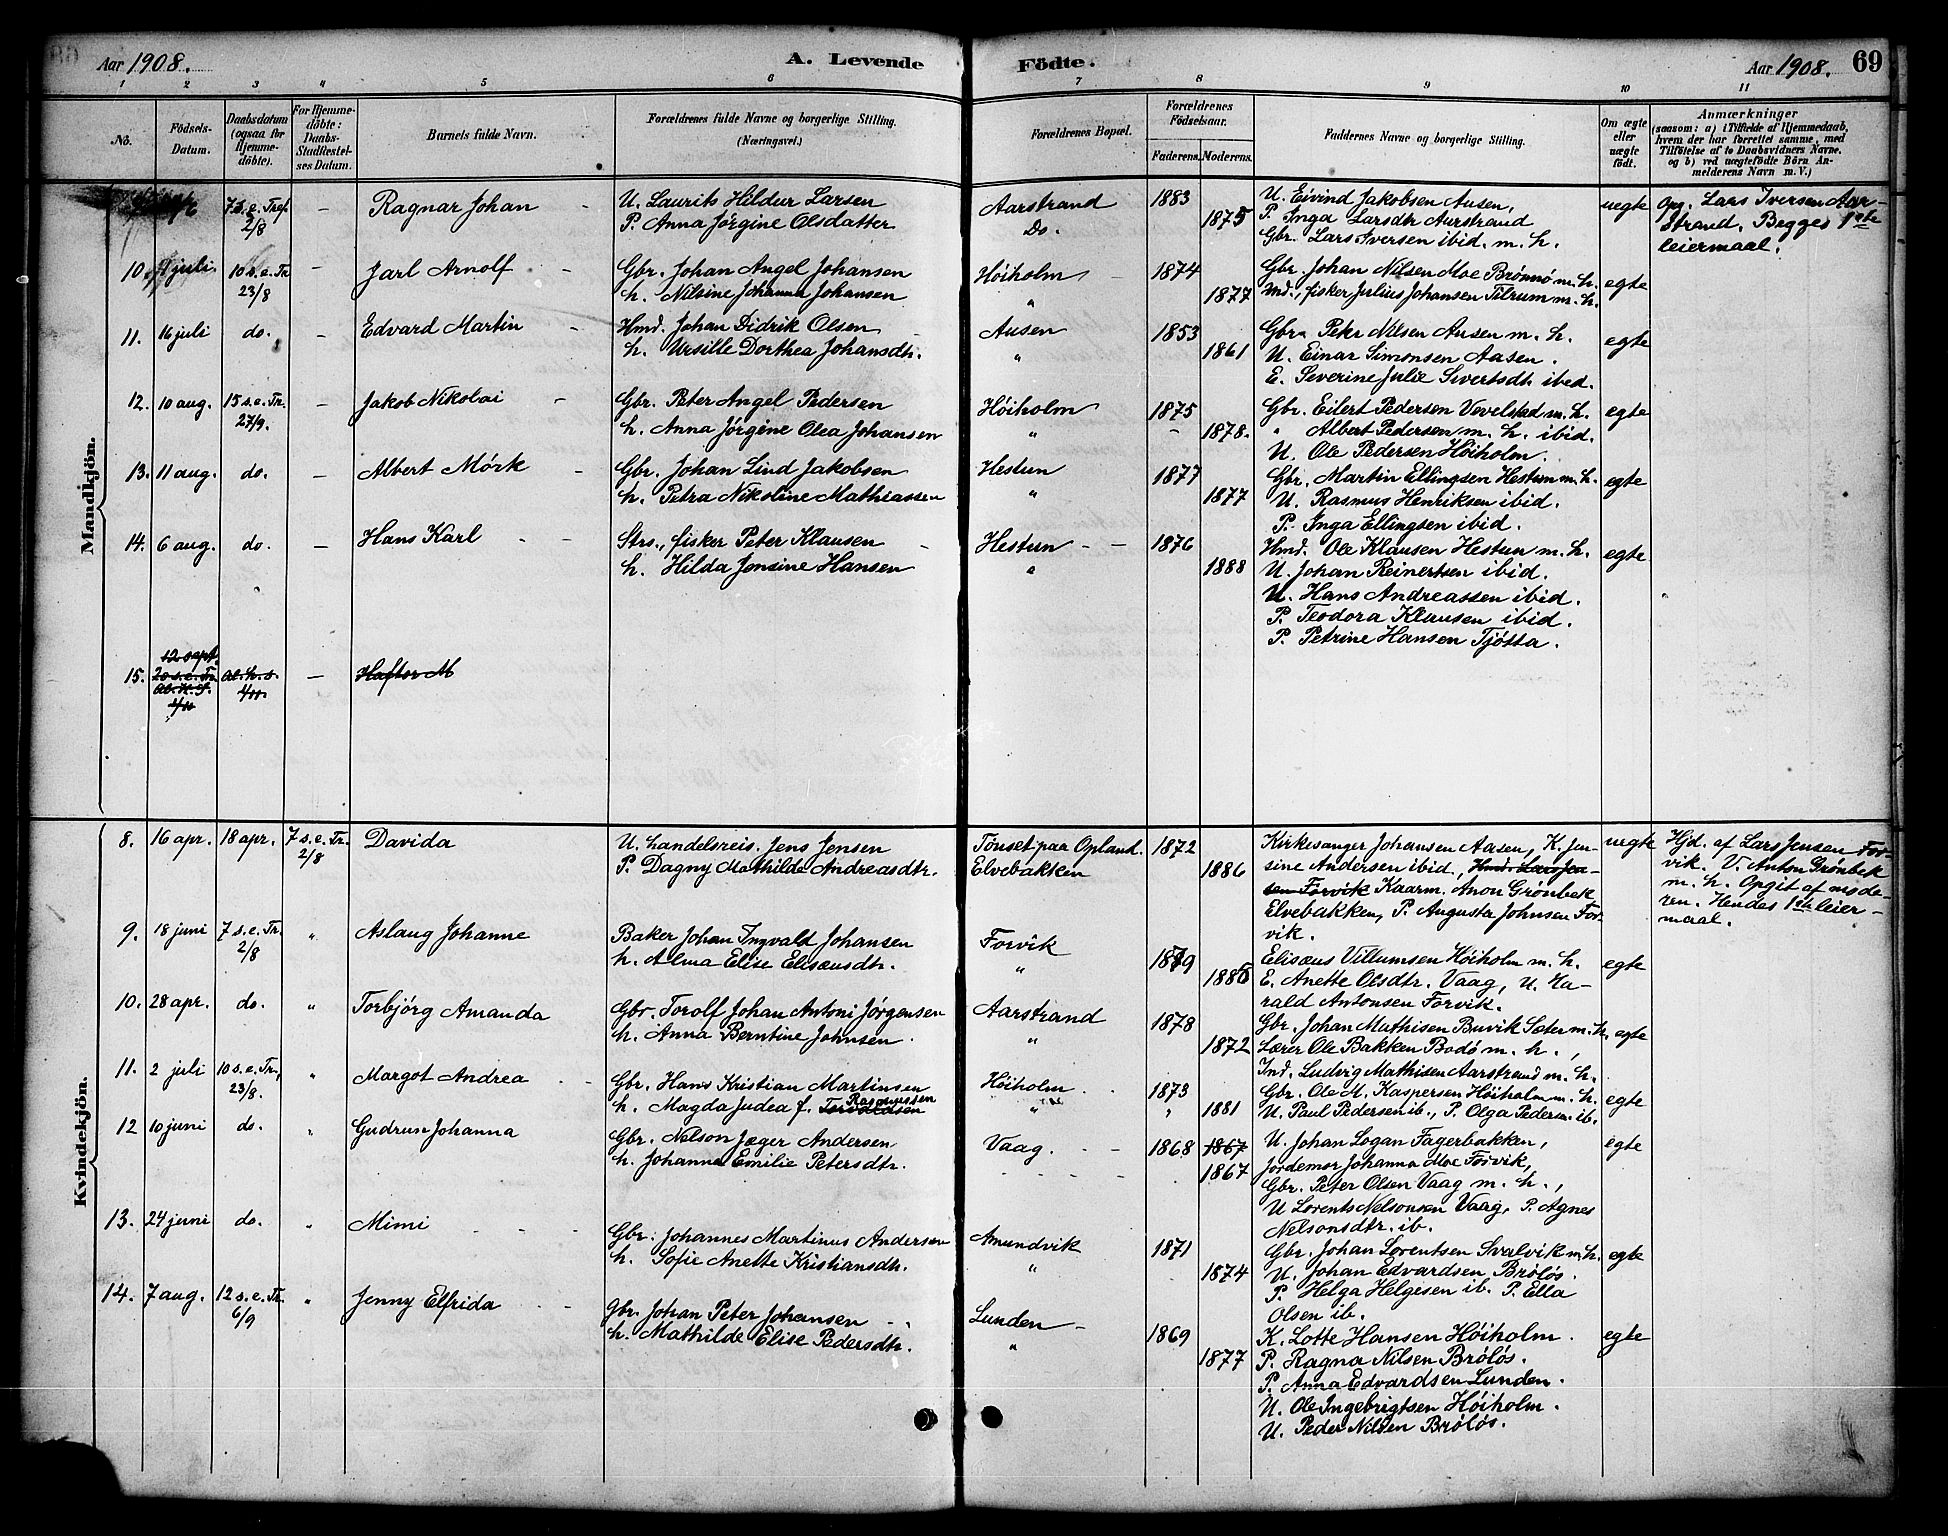 Aar 1908. A. Levende Födte. Aar 1908. 69
1 2 3 4 5 6 7 8 9 10 11
No. Födsels-Datum. Daabsdatum (ogsaa for Hjemme-döbte). For Hjemme-döbte: Daabs Stadfestel-ses Datum. Barnets fulde Navn. Forældrenes fulde Navne og borgerlige Stilling. (Næringsvei.) Forældrenes Bopæl. Forældrenes Födselsaar. Faderens. Moderens. Faddernes Navne og borgerlige Stilling. Om ægte eller uægte födt. Anmærkninger (saasom: a) i Tilfælde af Hjemmedaab, hvem der har forrettet samme, med Tilföielse af to Daabsvidners Navne, og b) ved uægtefödte Börn An-melderens Navn m. V.)
Mandkjön.
7 s. e. Tref. 2/8 – Ragnar Johan – U. Laurits Hildur Larsen Aarstrand 1883 U. Eivind Jakobsen Ausen, uegte Opg. Lars Iversen Aar-
P. Anna Jørgine Olsdatter Do. 1875 P. Inga Larsdtr Aarstrand strand. Begges 1ste
Gbr. Lars Iversen ibid. m. h. leiermaal.
10. juli 10 s. e. Tr. 23/8 – Jarl Arnolf – Gbr. Johan Angel Johansen Høiholm – 1874 Gbr. Johan Nilsen Moe Brønnø m. h. egte
h. Nilsine Johanna Johansen " 1877 Ind., fisker Julius Johansen Tilrum m. h.
11. 16 juli do. – Edvard Martin – Hmd. Johan Didrik Olsen Ausen 1853 Gbr. Peter Nilsen Ausen m. h. egte
h. Ursille Dorthea Johansdtr. " 1861 U. Einar Simonsen Aasen.
E. Severine Julie Sivertsdtr ibid.
12. 10 aug. 15 s. e. Tr. 27/9. – Jakob Nikolai – Gbr. Peter Angel Pedersen Høiholm 1875 Gbr. Eilert Pedersen Vevelstad m. h. egte
h. Anna Jørgine Olea Johansen " – 1878. " Albert Pedersen m. h. ibid.
U. Ole Pedersen Høiholm.
13. 11 aug. do. – Albert Mørk – Gbr. Johan Lind Jakobsen Hestun 1877 Gbr. Martin Ellingsen Hestun m. h. egte
h. Petra Nikoline Mathiassen " 1877 U. Rasmus Henriksen ibid.
P. Inga Ellingsen ibid.
14. 6 aug. do. – Hans Karl – – Strs., fisker Peter Klausen – Hestun – – 1876 Hmd. Ole Klausen Hestun m. h. egte
h. Hilda Jonsine Hansen " 1888 U. Johan Reinertsen ibid.
U. Hans Andreassen ibid.
P. Teodora Klausen ibid.
P. Petrine Hansen Tjøtta.
12 sept.
15. 20 s. e. Tr. Al. H. S. 1/11 Al. h. s. 1/11. – Haftor M
Kvindekjön.
8. 16 apr. 18 apr. 7 s. e. Tr. 2/8 Davida U. handelsreis. Jens Jensen Tønset paa Opland. 1872 Kirkesanger Johansen Aasen, K. Jen- uegte Hjd. af Lars Jensen For-
P. Dagny Mathilde Andreasdtr. Elvebakken 1886 sine Andersen ibid, Hmd. Lars Jen- vik. V. Anton Grønbek
sen Forvik Kaarm. Anon Grønbek m. h. Opgit af mode-
Elvebakken, P. Augusta Johnsen For- ren. Hendes 1ste leier-
vik. maal.
9. 18 juni 7 s. e. Tr. 2/8 " Aslaug Johanne Baker Johan Ingvald Johansen Forvik 1879 Elisæus Villumsen Høiholm m. h. egte
h. Alma Elise Elisæusdtr. " 1885 E. Anette Olsdtr. Vaag, U. Ha-
rald Antonsen Forvik.
10. 28 apr. do. " Torbjørg Amanda Gbr. Torolf Johan Antoni Jørgensen Aarstrand 1878 Gbr. Johan Mathisen Buvik Sæter m. h. egte
h. Anna Berntine Johnsen. " 1872 Lærer Ole Bakken Bodø m. h.,
Ind. Ludvig Mathisen Aarstrand m. h.
11. 2 juli 10 s. e. Tr., 23/8. " Margot Andrea – – Gbr. Hans Kristian Martinsen Høiholm 1873 Gbr. Ole M. Kaspersen Høiholm m. h. egte
h. Magda Judea f. Torvaldsen Rasmussen " " 1881 U. Paul Pedersen ib., P. Olga Pedersen ib.
12 10 juni do. " Gudrun Johanna Gbr. Nelson Jæger Andersen Vaag. 1868 1867 U. Johan Logan Fagerbakken, egte
h. Johanna Emilie Petersdtr. 1867 Jordemor Johanna Moe Forvik,
Gbr. Peter Olsen Vaag m. h.,
U. Lorents Nelsonsen Vaag, P. Agnes
Nelsonsdtr. ib.
13. 24 juni do. " Mimi – – Gbr. Johannes Martinus Andersen Amundvik 1871 Gbr. Johan Lorentsen Svalvik m. h. egte
h. Sofie Anette Kristiansdtr. " 1874 U. Johan Edvardsen Brøløs.
P. Helga Helgesen ib. P. Ella
Olsen ib.
14. 7 aug. 12 s. e. Tr. 6/9 " Jenny Elfrida – – Gbr. Johan Peter Johansen Lunden – 1869 K. Lotte Hansen Høiholm. egte
h. Mathilde Elise Pedersdtr. " 1877 P. Ragna Nilsen Brøløs.
P. Anna Edvardsen Lunden.
U. Ole Ingebrigtsen Høiholm.
U. Peder Nilsen Brøløs.